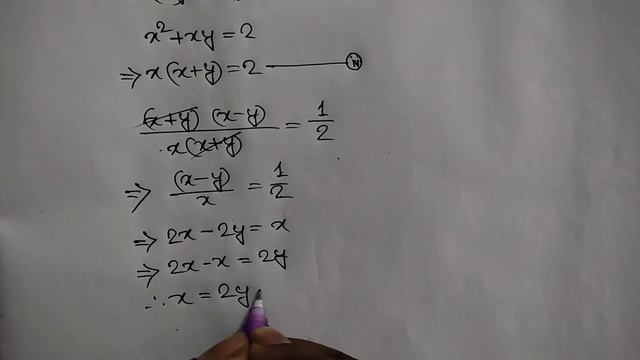 x² + xy = 2
⇒ x(x+y) = 2 —— (iv)
(x+y)(x-y) / x(x+y) = 1/2
⇒ (x-y)/x = 1/2
⇒ 2x - 2y = x
⇒ 2x - x = 2y
∴ x = 2y